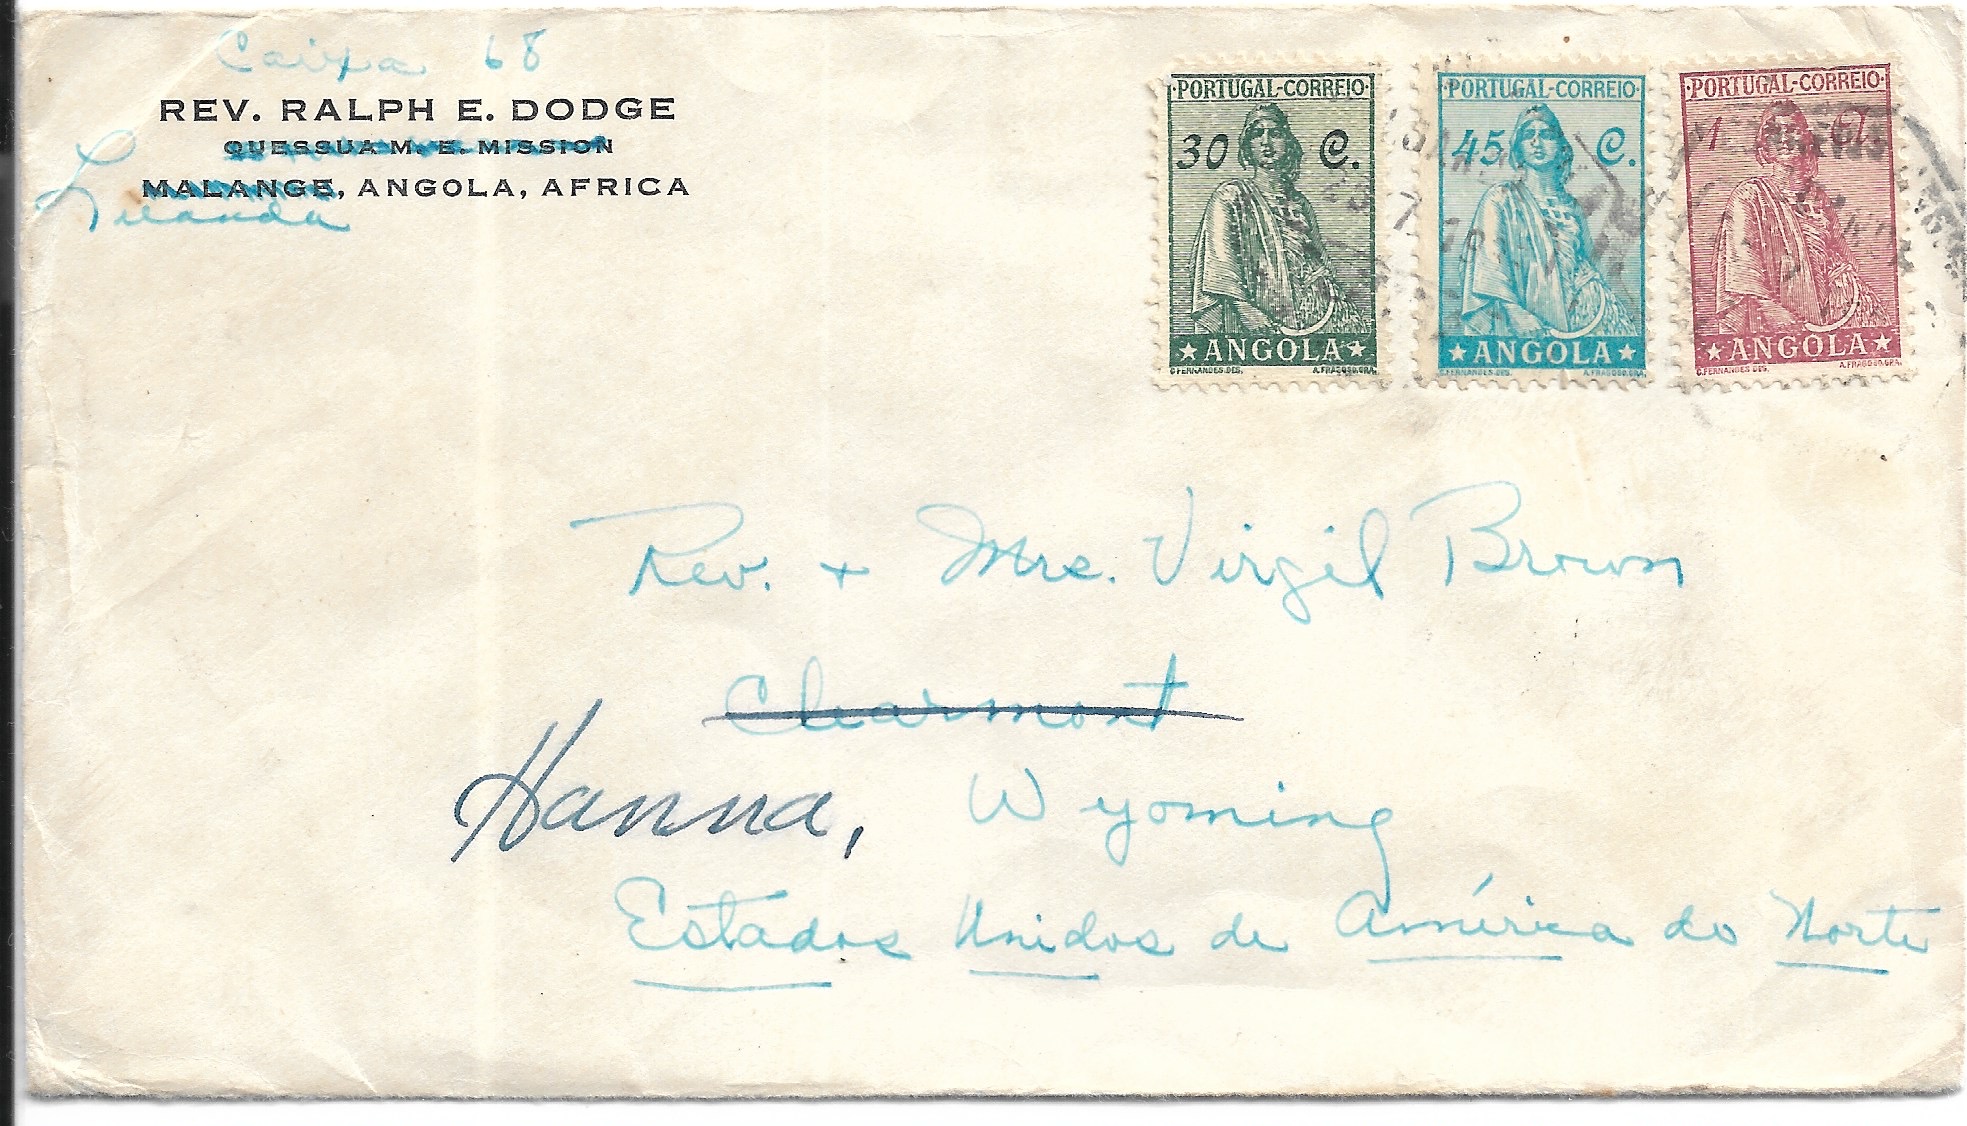 Caixa 68
REV. RALPH E. DODGE
QUESSUA M. E. MISSION
MALANGE, ANGOLA, AFRICA
Luanda
PORTUGAL-CORREIO
30 C.
ANGOLA
C. FERNANDES DES. A. FRAGOSO. GRA.
PORTUGAL-CORREIO
45 C.
ANGOLA
C. FERNANDES DES. A. FRAGOSO. GRA.
PORTUGAL-CORREIO
1
ANGOLA
C. FERNANDES DES. A. FRAGOSO. GRA.
Rev. + Mrs. Virgil Brown
Clearmont
Hanna, Wyoming
Estados Unidos de América do Norte